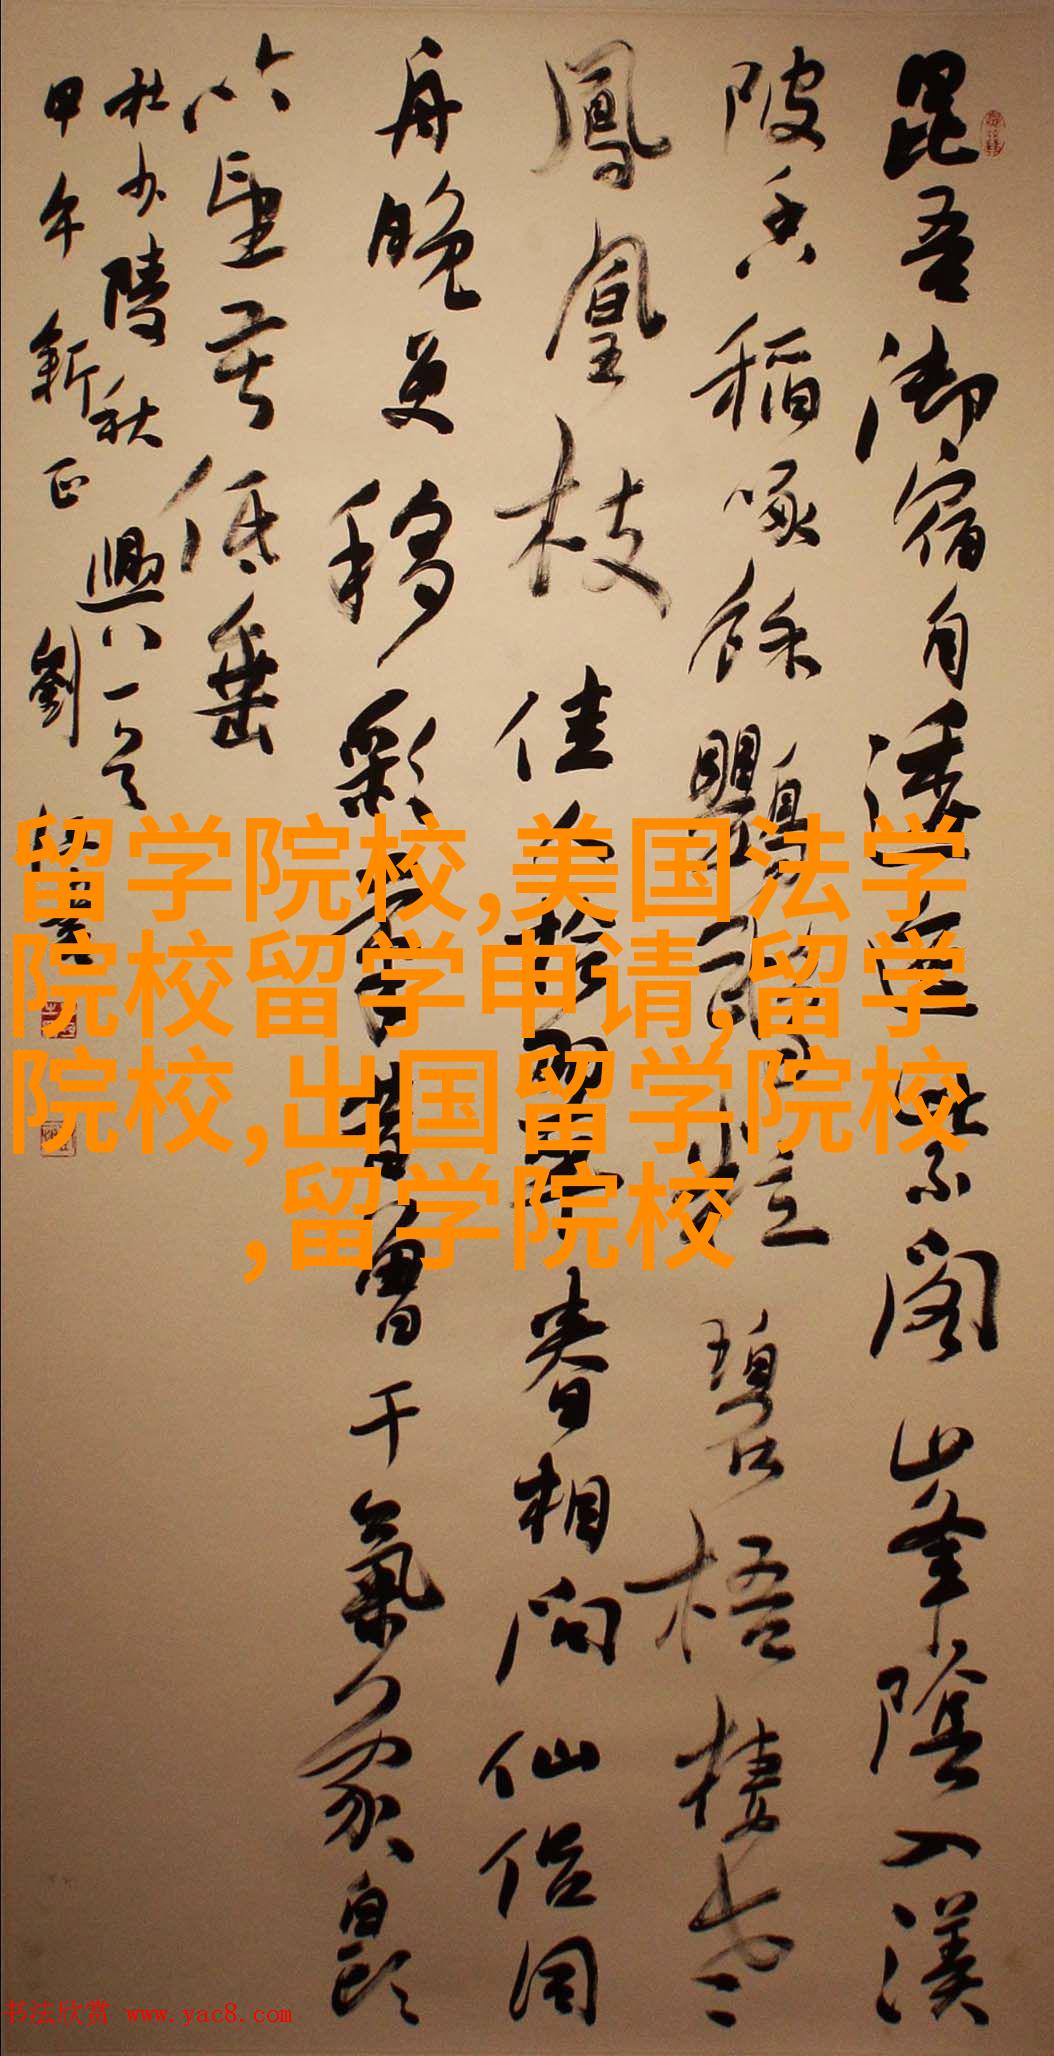 昆吾御宿自逶迤紫阁山峯陰入渼
陂香稻啄餘鸚鵡粒碧梧棲老
鳳凰枝佳人拾翠春相問仙侣同
舟晚更移彩筆昔曾干氣象白頭
吟望苦低垂
杜少陵秋興八
甲午新正劉
留学院校,美国法学
院校留学申请,留学
院校,出国留学院校
,留学院校
书法欣赏 www.yac8.com